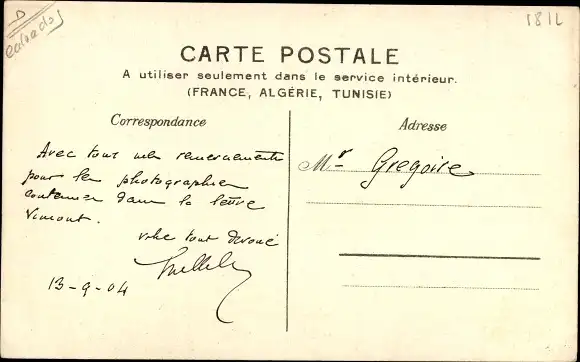 D
Calvados
181L
CARTE POSTALE
A utiliser seulement dans le service intérieur.
(FRANCE, ALGÉRIE, TUNISIE)
Correspondance
Adresse
Avec tout mes remerciements
pour les photographies
contenues dans la lettre
Vimont.
votre tout dévoué
13-9-04
Mr Gregoire